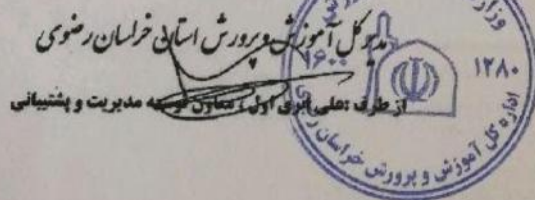 مدیرکل آموزش و پرورش استان خراسان رضوی
از طرف : علی ابری اول ، معاون توسعه مدیریت و پشتیبانی
وزارت
۱۶۰۰
۱۲۸۰
اداره کل آموزش و پرورش خراسان رضوی